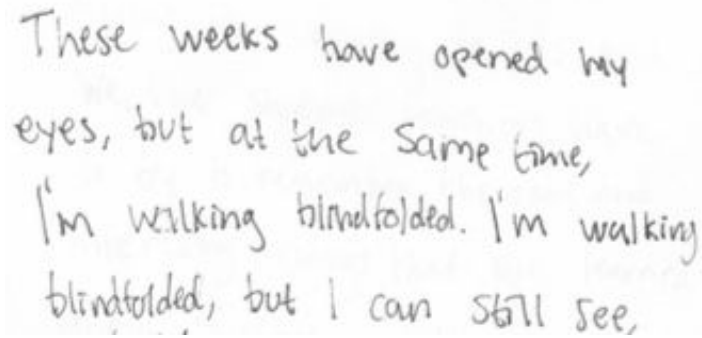 These weeks have opened my
eyes, but at the same time,
I'm walking blindfolded. I'm walking
blindfolded, but I can still see,